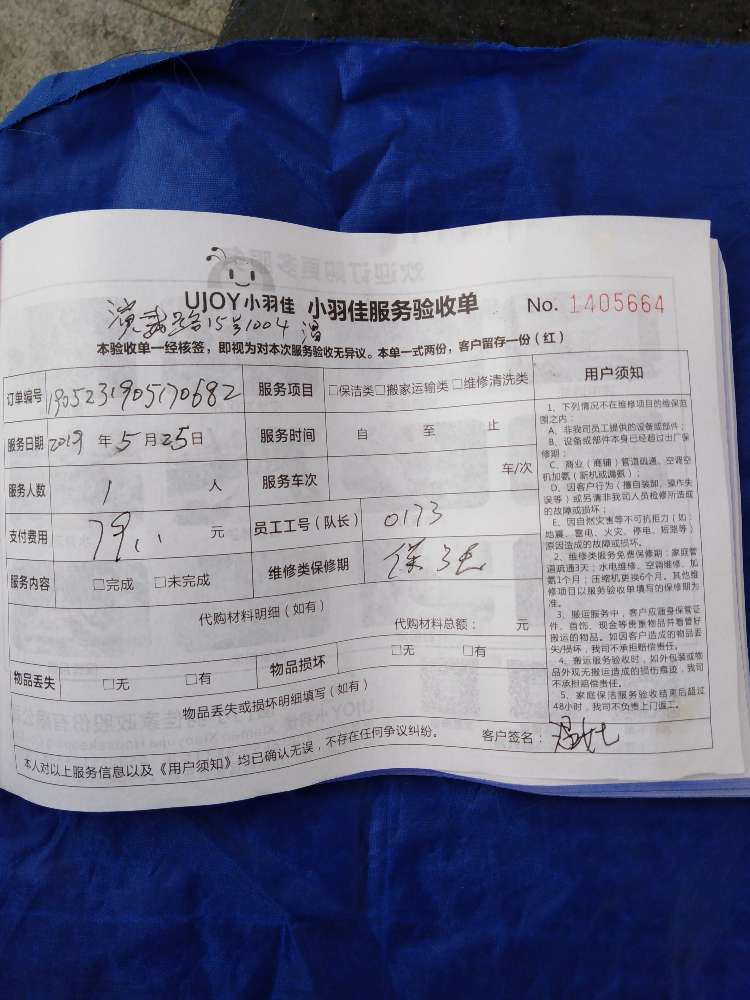 UJOY小羽佳 小羽佳服务验收单 No. 1405664
演武路15号1004 冯
本验收单一经核签，即视为对本次服务验收无异议。本单一式两份，客户留存一份（红）
订单编号 1905231905170682 服务项目 □保洁类□搬家运输类□维修清洗类
服务日期 2019 年 5 月 25 日 服务时间 自 至 止
服务人数 1 人 服务车次 车/次
支付费用 79 元 员工工号（队长） 0173
服务内容 □完成 □未完成 维修类保修期 保3天
代购材料明细（如有）
代购材料总额： 元
物品丢失 □无 □有 物品损坏 □无 □有
物品丢失或损坏明细填写（如有）
本人对以上服务信息以及《用户须知》均已确认无误，不存在任何争议纠纷。 客户签名：
用户须知
1、下列情况不在维修项目的维保范
围之内：
A、非我司员工提供的设备或部件；
B、设备或部件本身已经超过出厂保
修期；
C、商业（商铺）管道疏通、空调空
机加氨（新机或漏氨）；
D、因客户行为（擅自装卸、操作失
误等）或另请非我司人员检修所造成
的故障或损坏；
E、因自然灾害等不可抗拒力（如：
地震、雷电、火灾、停电、短路等）
原因造成的故障或损坏。
2、维修类服务免费保修期：家庭管
道疏通3天；水电维修、空调维修、加
氨1个月；压缩机更换6个月。其他维
修项目以服务验收单填写的保修期为
准。
3、搬运服务中，客户应随身保管证
件、首饰、现金等贵重物品并看管好
搬运的物品。如因客户造成的物品丢
失/损坏，我司不承担赔偿责任。
4、搬运服务验收时，如外包装或物
品外观无搬运造成的损伤痕迹，我司
不承担赔偿责任。
5、家庭保洁服务验收结束后超过
48小时，我司不负责上门返工。
欢迎订购更多服务